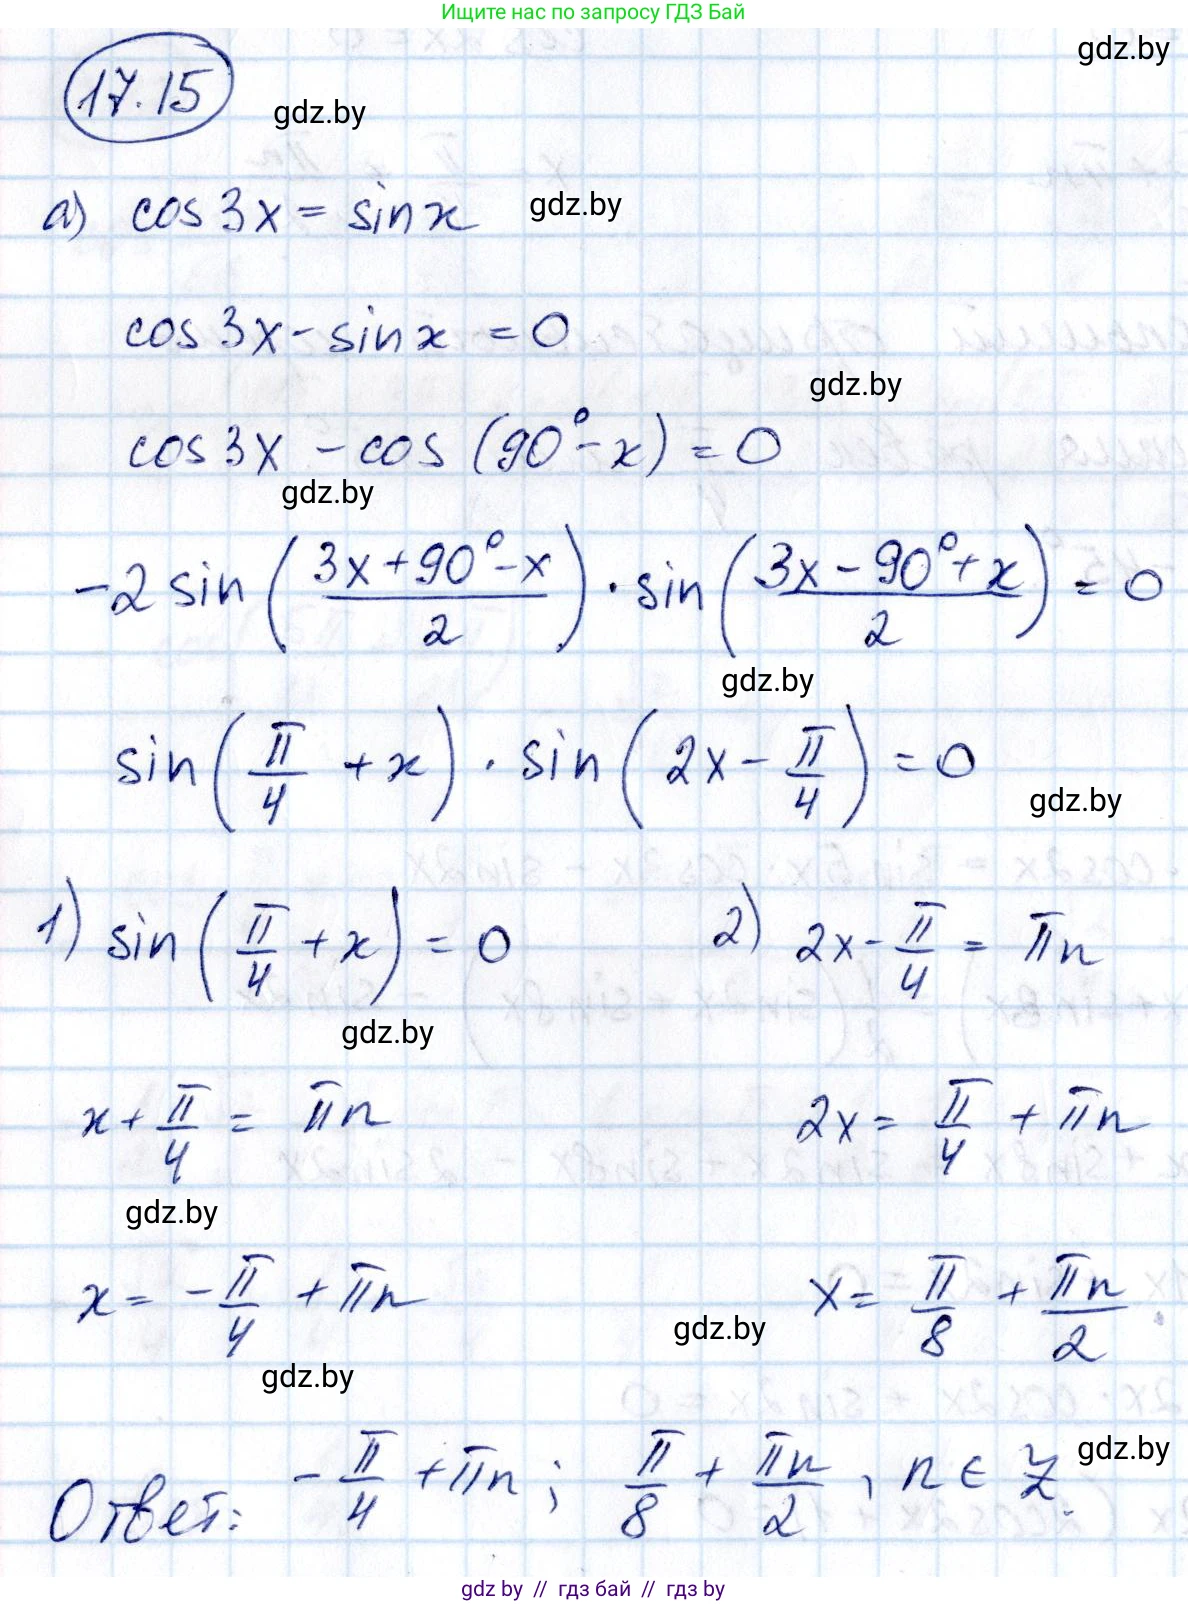 Ищите нас по запросу ГДЗ Бай
gdz.by
17.15
gdz.by
а) cos 3x = sin x gdz.by
cos 3x - sin x = 0
gdz.by
cos 3x - cos (90° - x) = 0
gdz.by
-2 sin ((3x + 90° - x)/2) · sin ((3x - 90° + x)/2) = 0
gdz.by
sin (π/4 + x) · sin (2x - π/4) = 0
gdz.by
1) sin (π/4 + x) = 0 2) 2x - π/4 = πn
gdz.by
x + π/4 = πn 2x = π/4 + πn
gdz.by
x = -π/4 + πn x = π/8 + πn/2
gdz.by
gdz.by
gdz.by
Ответ: -π/4 + πn; π/8 + πn/2, n ∈ Z.
gdz by // гдз бай // гдз by